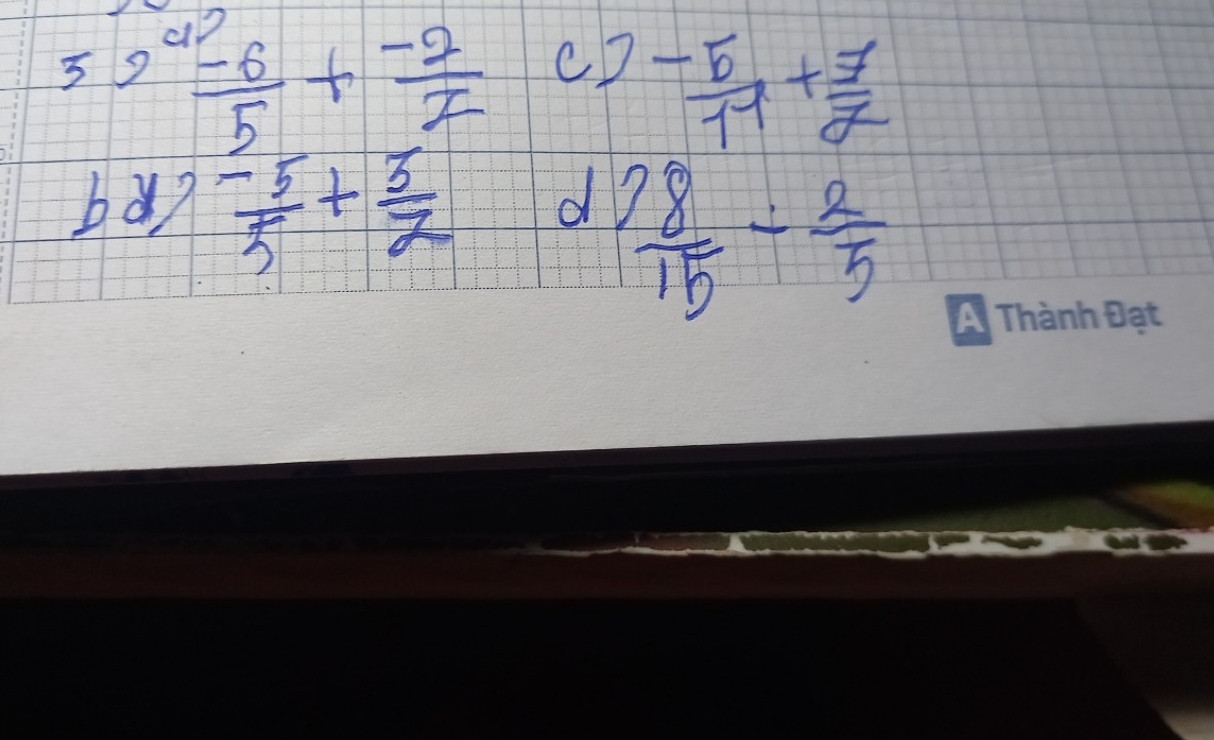 3) a) -6/5 + -2/7 c) -5/11 + 7/7
b) -5/5 + 3/2 d) 8/15 - 2/5
A Thành Đạt